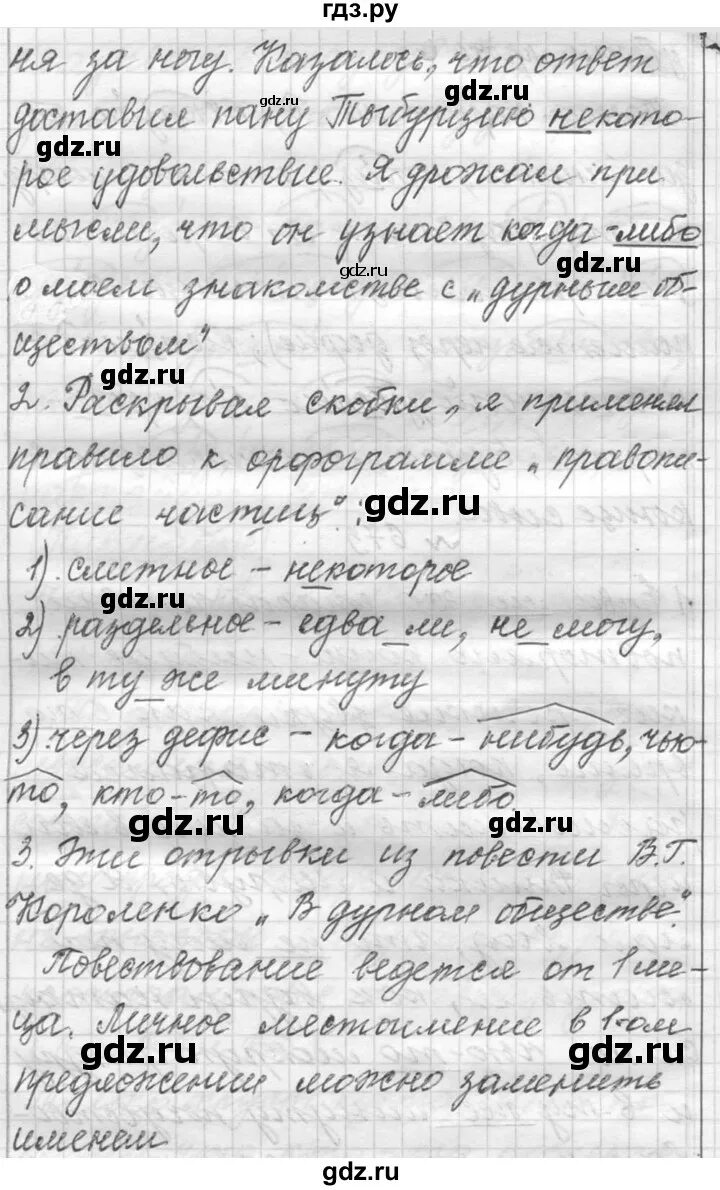 гдз.ру
ня за ногу. Казалось, что ответ
gdz.ru
gdz.ru
доставил пану Тыбурцию некото-
gdz.ru
рое удовольствие. Я дрожал при
мысли, что он узнает когда-либо
gdz.ru
gdz.ru
о моем знакомстве с „дурным об-
ществом"
gdz.ru
2. Раскрывая скобки, я применял
правило к орфограмме „правопи-
gdz.ru
сание частиц":
1). слитное – некоторое
gdz.ru
2) раздельное – едва ли, не могу,
в ту же минуту
3) через дефис – когда-нибудь, чью-
то, кто-то, когда-либо
gdz.ru
gdz.ru
3. Эти отрывки из повести В.Г.
Короленко „В дурном обществе".
Повествование ведется от 1 ли-
ца. Личное местоимение в 1-ом
gdz.ru
gdz.ru
предложении можно заменить
именем
gdz.ru